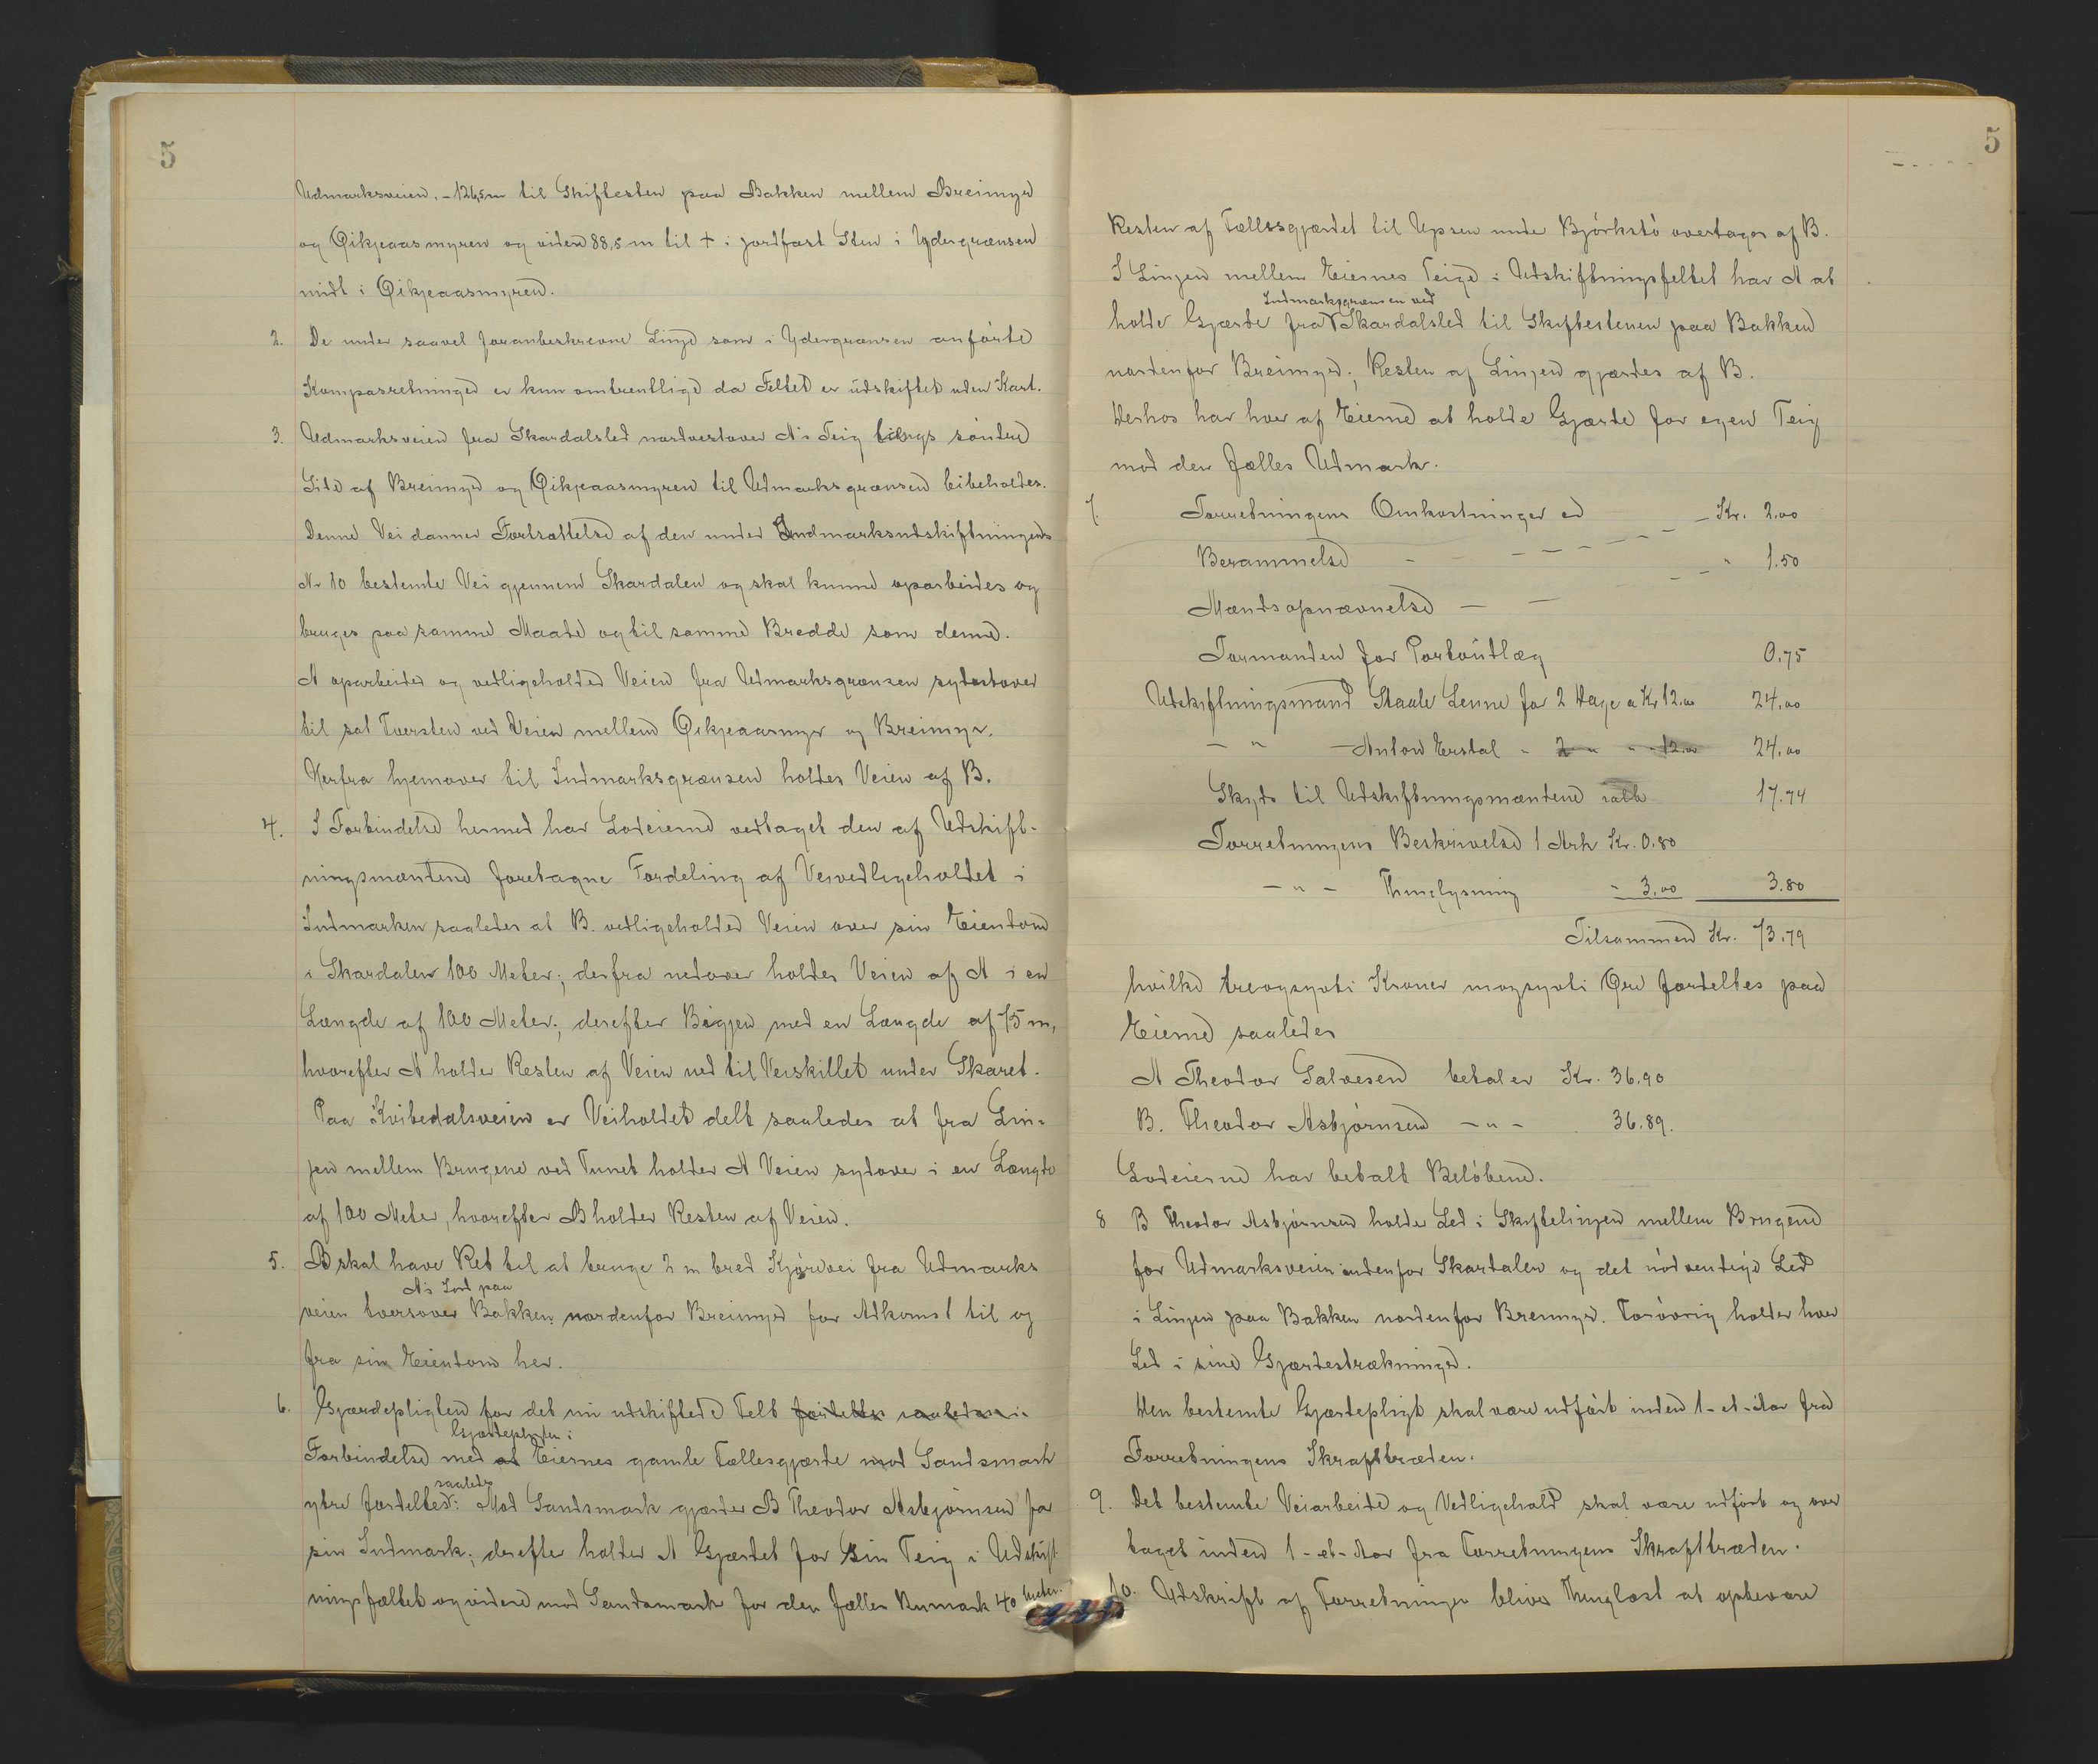 5
Udmarksveien. - 126,5 m til Skiftesten paa Bakken mellem Breimyr
og Qikjeaasmyren og videre 88,5 m til + i jordfast Sten i Ydergrænsen
midt i Qikjeaasmyren.
2. De under saavel foranbeskrevne Linje som i Ydergrænsen anførte
Kompasretninger er kun omtrentlige da Feltet er udskiftet uden Kart.
3. Udmarksveien fra Skardalsled nordvestover A's Teig langs søndre
Side af Breimyr og Qikjeaasmyren til Udmarksgrænsen beibeholdes.
Denne Vei danner Fortsættelse af den under Indmarksudskiftningens
Nr 10 bestemte Vei gjennem Skardalen og skal kunne oparbeides og
bruges paa samme Maade og til samme Bredde som denne.
A oparbeider og vedligeholder Veien fra Udmarksgrænsen sydostover
til sat Tversten ved Veien mellem Qikjeaasmyr og Breimyr.
Herfra hjemover til Indmarksgrænsen holdes Veien af B.
4. I Forbindelse hermed har Lodeierne vedtaget den af Udskift-
ningsmændene foretagne Fordeling af Veivedligeholdet i
Indmarken saaledes at B. vedligeholder Veien over sin Eiendom
i Skardalen 100 Meter; derfra nedover holdes Veien af A i en
Længde af 100 Meter; derefter B igjen med en Længde af 75 m,
hvorefter A holder Resten af Veien ned til Veiskillet under Skaret.
Paa Kvibedalsveien er Veiholdet delt saaledes at fra Lin-
jen mellem Brugene ved Tunet holder A Veien sydover i en Længde
af 100 Meter, hvorefter B holder Resten af Veien.
5. B skal have Ret til at bruge 2 m bred Kjørevei fra Udmarks
A's Lod paa
veien tversover Bakken nordenfor Breimyr for Adkomst til og
fra sin Eiendom her.
6. Gjærdepligten for det nu udskiftede Felt fordeles saaledes i
Gjærdepligten i
Forbindelse med at Eiernes gamle Fællesgjærde mod Sandsmark
saaledes
ytre fordeltes: Mod Sandsmark gjærder B Theodor Asbjørnsen for
sin Indmark; derefter holder A Gjærdet for sin Teig i Udskift
ningsfæltet og videre mod Sandsmark for den fælles Bumark 40 Meter.
5
Resten af Fællesgjærdet til Upsen under Bjørkstø overtages af B.
I Linjen mellem Eiernes Teige i Udskiftningsfeltet har A at
Indmarksgrænsen ved
holde Gjærde fra Skardalsled til Skiftestenen paa Bakken
nordenfor Breimyr; Resten af Linjen gjærdes af B.
Derhos har hver af Eierne at holde Gjærde for egen Teig
mod den fælles Udmark.
7. Forretningens Omkostninger er - Kr. 2.00
Berammelse - - - - - " 1.50
Mændsopnævnelse - -
Formanden for Portoudlæg 0.75
Udskiftningsmand Staale Lenne for 2 Dage a Kr 12.00 24.00
- " - Anton Erstal " 2 " " " 12.00 24.00
Skyds til Udskiftningsmændene 17.74
Forretningens Beskrivelse 1 Ark Kr. 0.80
- " - Thinglysning " 3.00 3.80
Tilsammen Kr. 73.79
hvilke treogsyvti Kroner niogsyvti Øre fordeltes paa
Eierne saaledes
A Theodor Salvesen betaler Kr. 36.90
B. Theodor Asbjørnsen - " - 36.89.
Lodeierne har betalt Beløbene.
8 B Theodor Asbjørnsen holder Led i Skiftelinjen mellem Brugene
for Udmarksveien indenfor Skardalen og det nødvendige Led
i Linjen paa Bakken nordenfor Breimyr. Forøvrig holder hver
Led i sine Gjærdestrækninger.
Den bestemte Gjærdepligt skal være udført inden 1 - et - Aar fra
Forretningens Ikrafttræden.
9. Det bestemte Veiarbeide og Vedligehold skal være udført og over
taget inden 1 - et - Aar fra Forretningens Ikrafttræden.
10. Udskrift af Forretningen blives thinglæst at opbevare